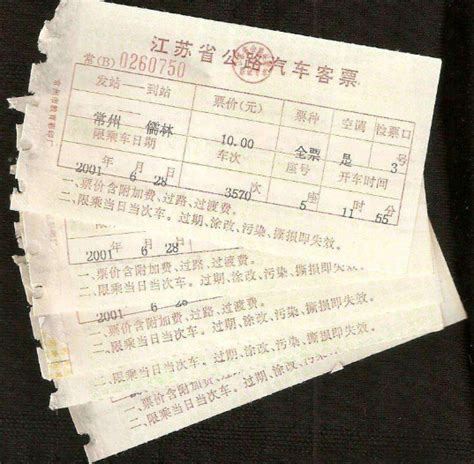 江苏省公路汽车客票
常(B)0260750
发站——到站 票价(元) 票种 空调 检票口
常州 儒林 10.00 全票 是 3号
限乘车日期 车次 座号 开车时间
2001年 6月 28日 3570 5座 11时 55分
一、票价含附加费、过路、过渡费。
二、限乘当日当次车。过期、涂改、污染、撕损即失效。
2001 6月 28日
一、票价含附加费、过路、过渡费。
二、限乘当日当次车。过期、涂改、污染、撕损即失效。
2001 6 28
一、票价含附加费、过路、过渡费。
二、限乘当日当次车。过期、涂改、污染、撕损即失效。
一、票价含附加费、过路、过渡费。
二、限乘当日当次车。过期、涂改、污染、撕损即失效。
二、限乘当日当次车。过期、涂改、污染、撕损即失效。